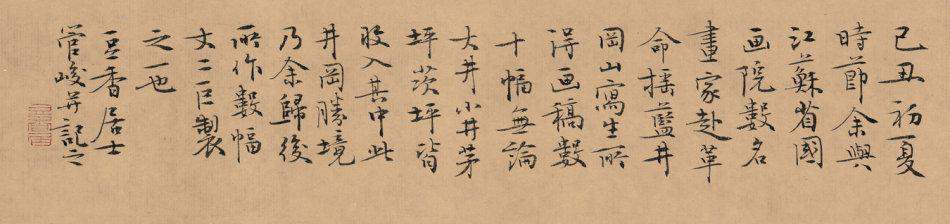 己丑初夏
時節余與
江蘇省國
画院數名
畫家赴革
命揺藍井
岡山寫生所
淂画稿數
十幅無論
大井小井茅
坪茨坪皆
收入其中此
井岡勝境
乃余歸後
所作數幅
丈二巨製
之一也
豆香居士
管峻并記之